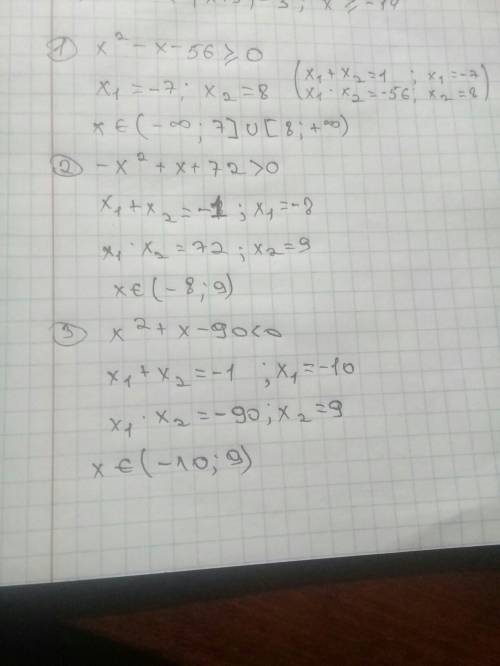 x ≥ -14
① x² - x - 56 ≥ 0
x₁ = -7; x₂ = 8 (x₁ + x₂ = 1 ; x₁ = -7
x₁ · x₂ = -56; x₂ = 8)
x ∈ (-∞; 7] ∪ [8; +∞)
② -x² + x + 72 > 0
x₁ + x₂ = -1 ; x₁ = -8
x₁ · x₂ = 72 ; x₂ = 9
x ∈ (-8; 9)
③ x² + x - 90 < 0
x₁ + x₂ = -1 ; x₁ = -10
x₁ · x₂ = -90; x₂ = 9
x ∈ (-10; 9)